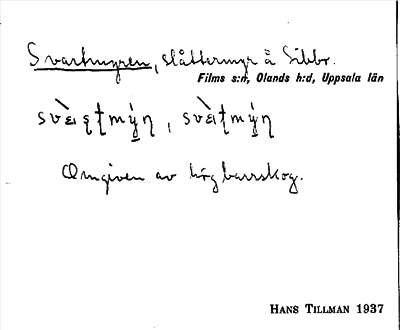 Svartmyren, slåttermyr å Sibbo.
Films s:n, Olands h:d, Uppsala län
Omgiven av hög barrskog.
HANS TILLMAN 1937